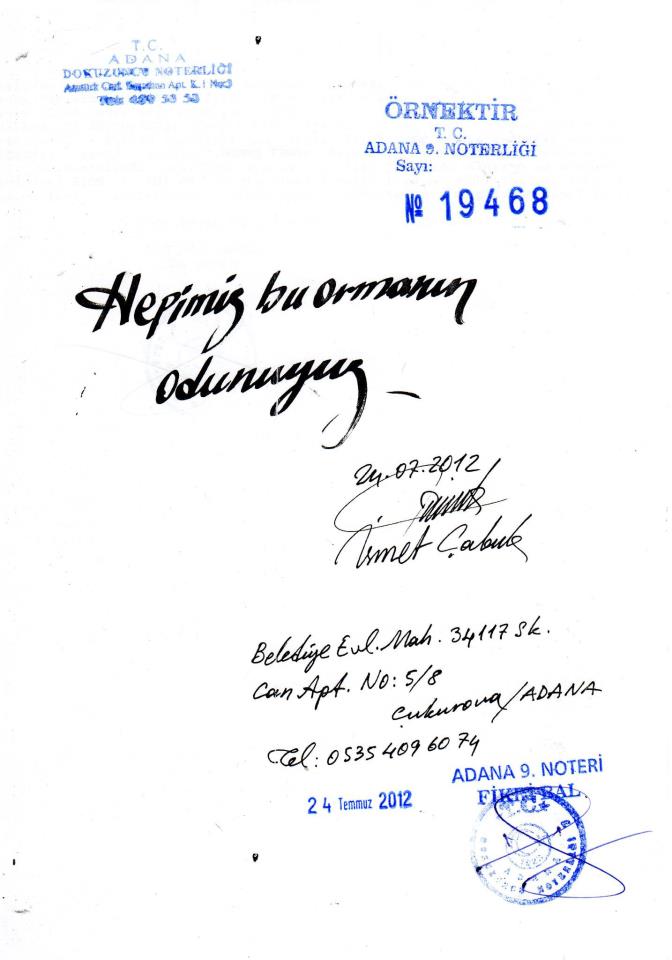 T.C.
ADANA
DOKUZUNCU NOTERLİĞİ
Apt. K.1
ÖRNEKTİR
T. C.
ADANA 9. NOTERLİĞİ
Sayı:
№ 19468
Hepimiz bu ormanın
odunuyuz _
24.07.2012
İsmet Çabuk
Belediye Evl. Mah. 34117 Sk.
Can Apt. No: 5/8
Çukurova/ADANA
Tel: 0535 409 60 74
24 Temmuz 2012
ADANA 9. NOTERİ
FİKRİ BAL
T.C.
ADANA